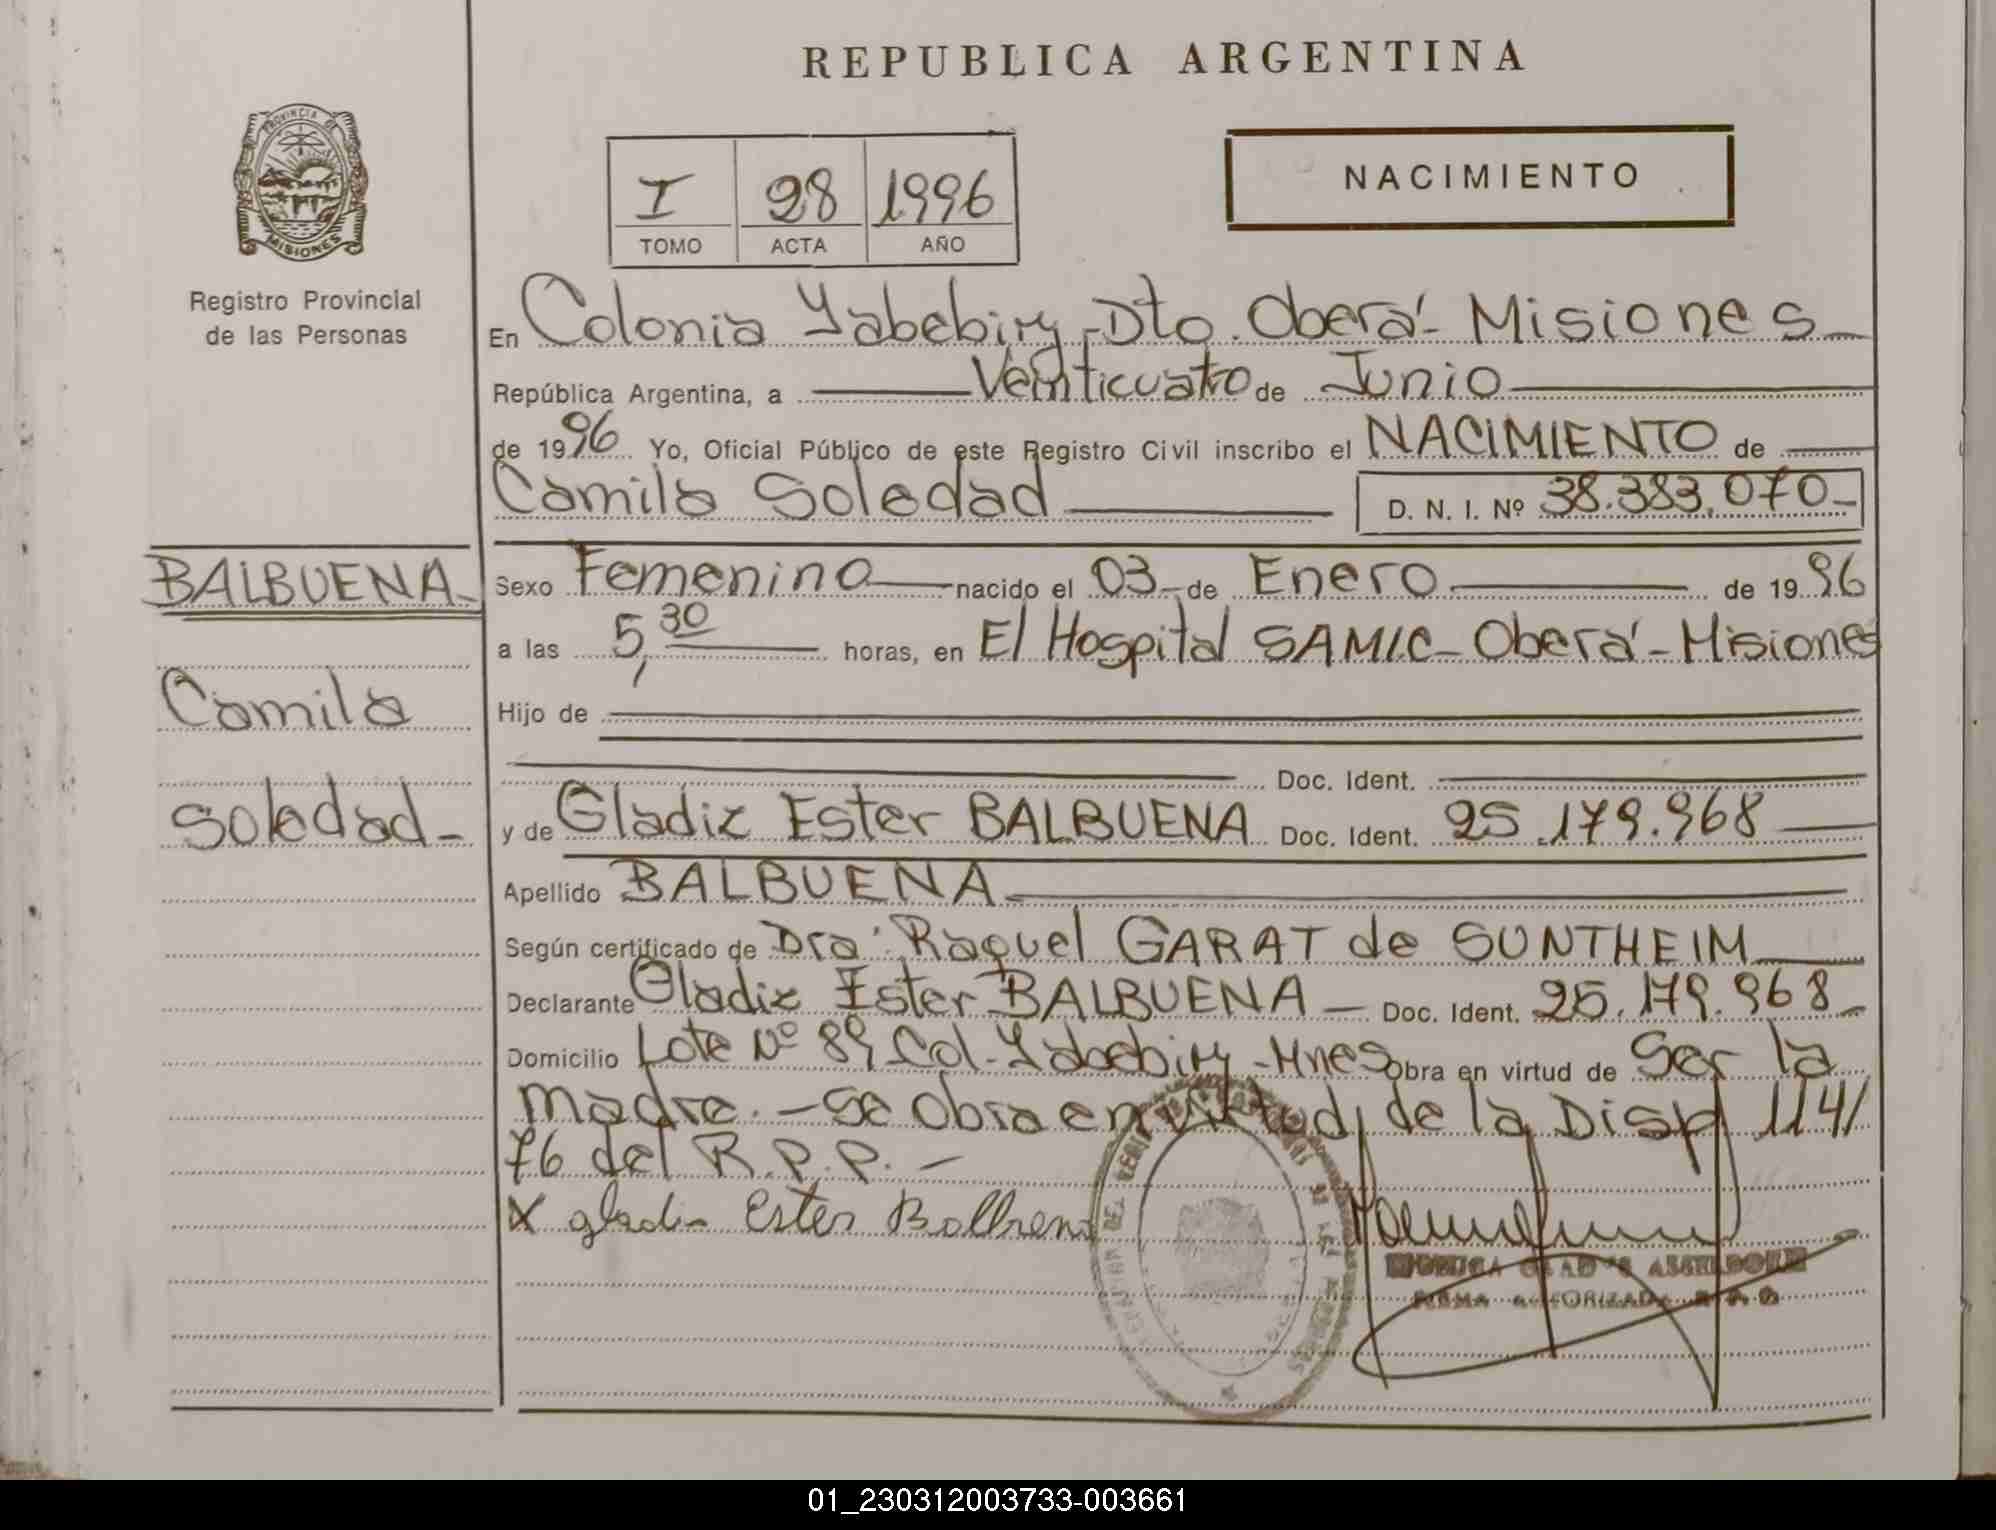 REPUBLICA ARGENTINA
PROVINCIA DE
MISIONES
Registro Provincial
de las Personas
I 28 1996
TOMO ACTA AÑO
NACIMIENTO
En Colonia Yabebiry - Dto. Oberá - Misiones
República Argentina, a Veinticuatro de Junio
de 1996 Yo, Oficial Público de este Registro Civil inscribo el NACIMIENTO de
Camila Soledad D. N. I. Nº 38.383.070-
BALBUENA-
Camila
Soledad-
Sexo Femenino nacido el 03 - de Enero de 1996
a las 5,30 horas, en El Hospital SAMIC - Oberá - Misiones
Hijo de
Doc. Ident.
y de Gladiz Ester BALBUENA Doc. Ident. 25.179.968
Apellido BALBUENA
Según certificado de Dra. Raquel GARAT de SUNTHEIM
Declarante Gladiz Ester BALBUENA - Doc. Ident. 25.179.968-
Domicilio Lote Nº 89 Col. Yabebiry - Mnes obra en virtud de Ser la
madre. - Se obra en virtud de la Disp 114/
76 del R.P.P. -
X Ester
01_230312003733-003661